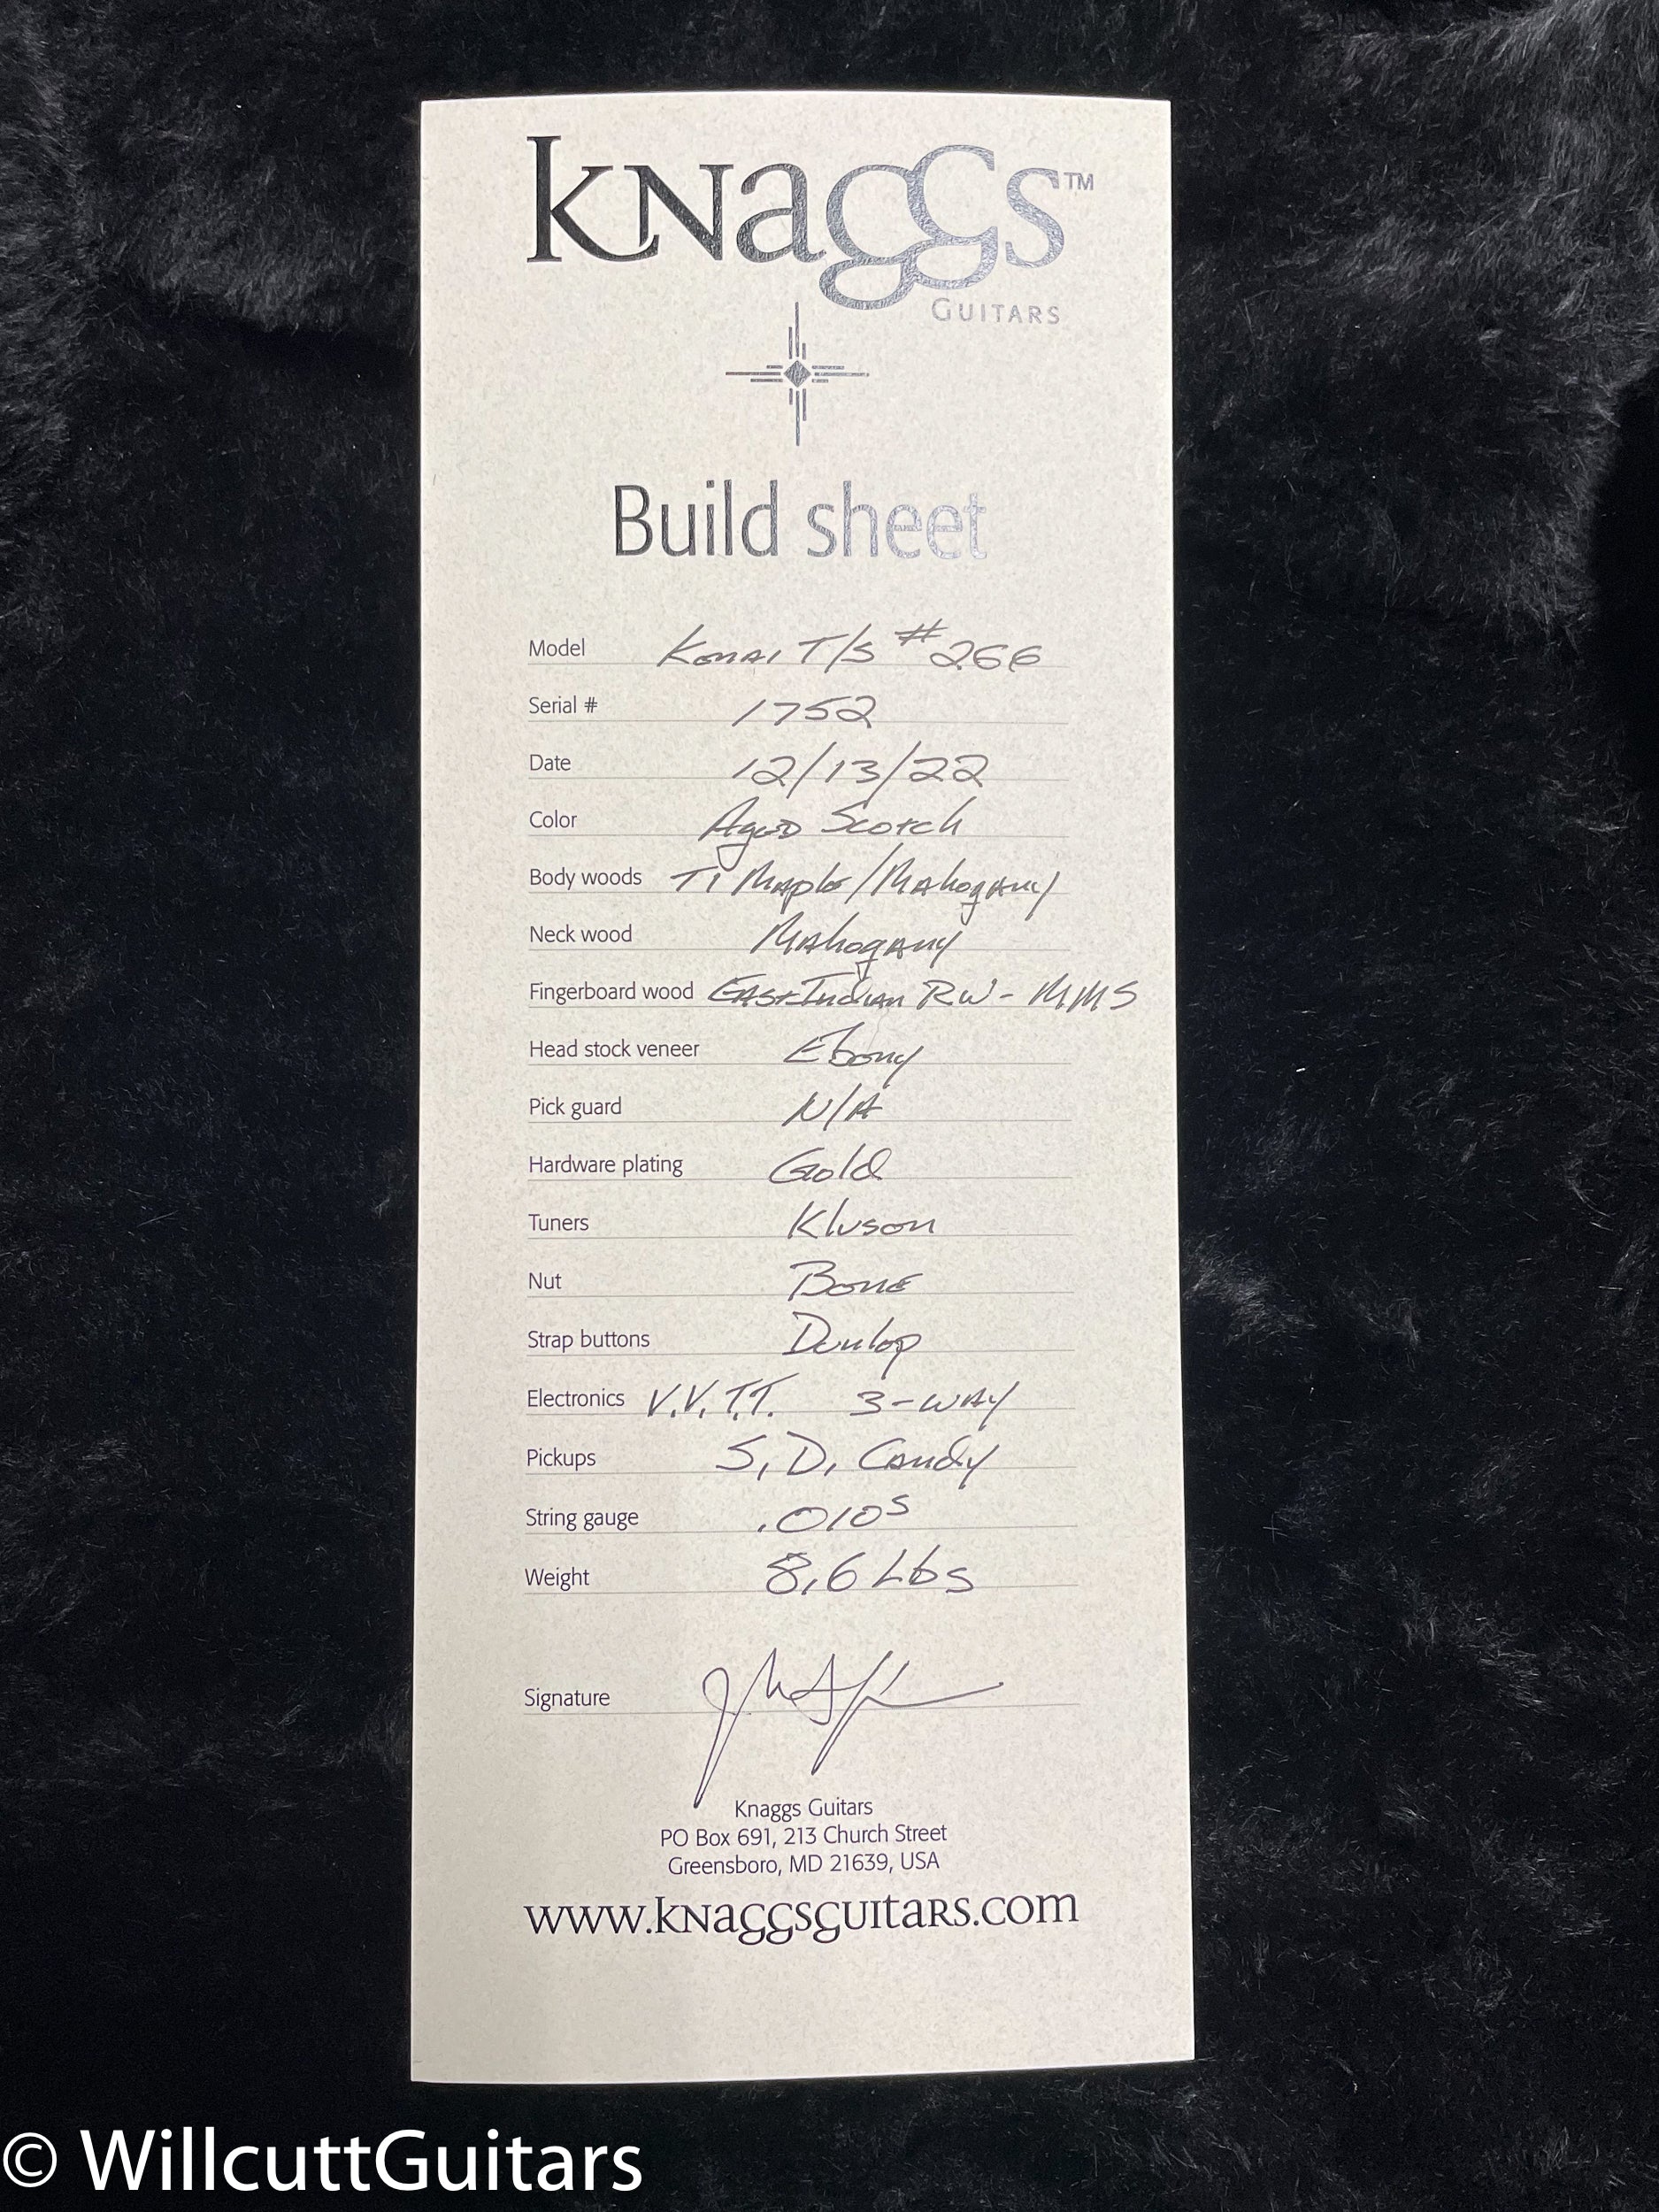 Knaggs™
Guitars
Build sheet
Model Kenai T/S #266
Serial # 1752
Date 12/13/22
Color Aged Scotch
Body woods T1 Maple/Mahogany
Neck wood Mahogany
Fingerboard wood East Indian RW - MMS
Head stock veneer Ebony
Pick guard N/A
Hardware plating Gold
Tuners Kluson
Nut Bone
Strap buttons Dunlop
Electronics V.V.T.T. 3-way
Pickups S.D. Candy
String gauge .010s
Weight 8.6 Lbs
Signature
Knaggs Guitars
PO Box 691, 213 Church Street
Greensboro, MD 21639, USA
www.knaggsguitars.com
© WillcuttGuitars